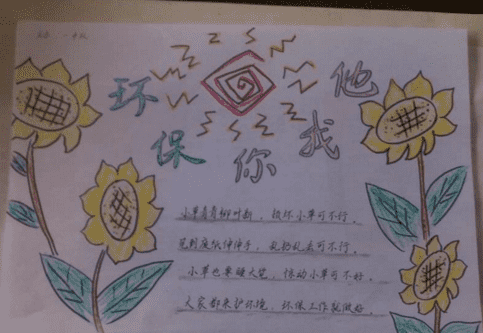 环保你我他
小草青青柳叶新，损坏小草可不行。
见到废纸伸伸手，乱扔乱丢可不行。
小草也要睡大觉，惊动小草可不好。
大家都来护环境，环保工作就做好。